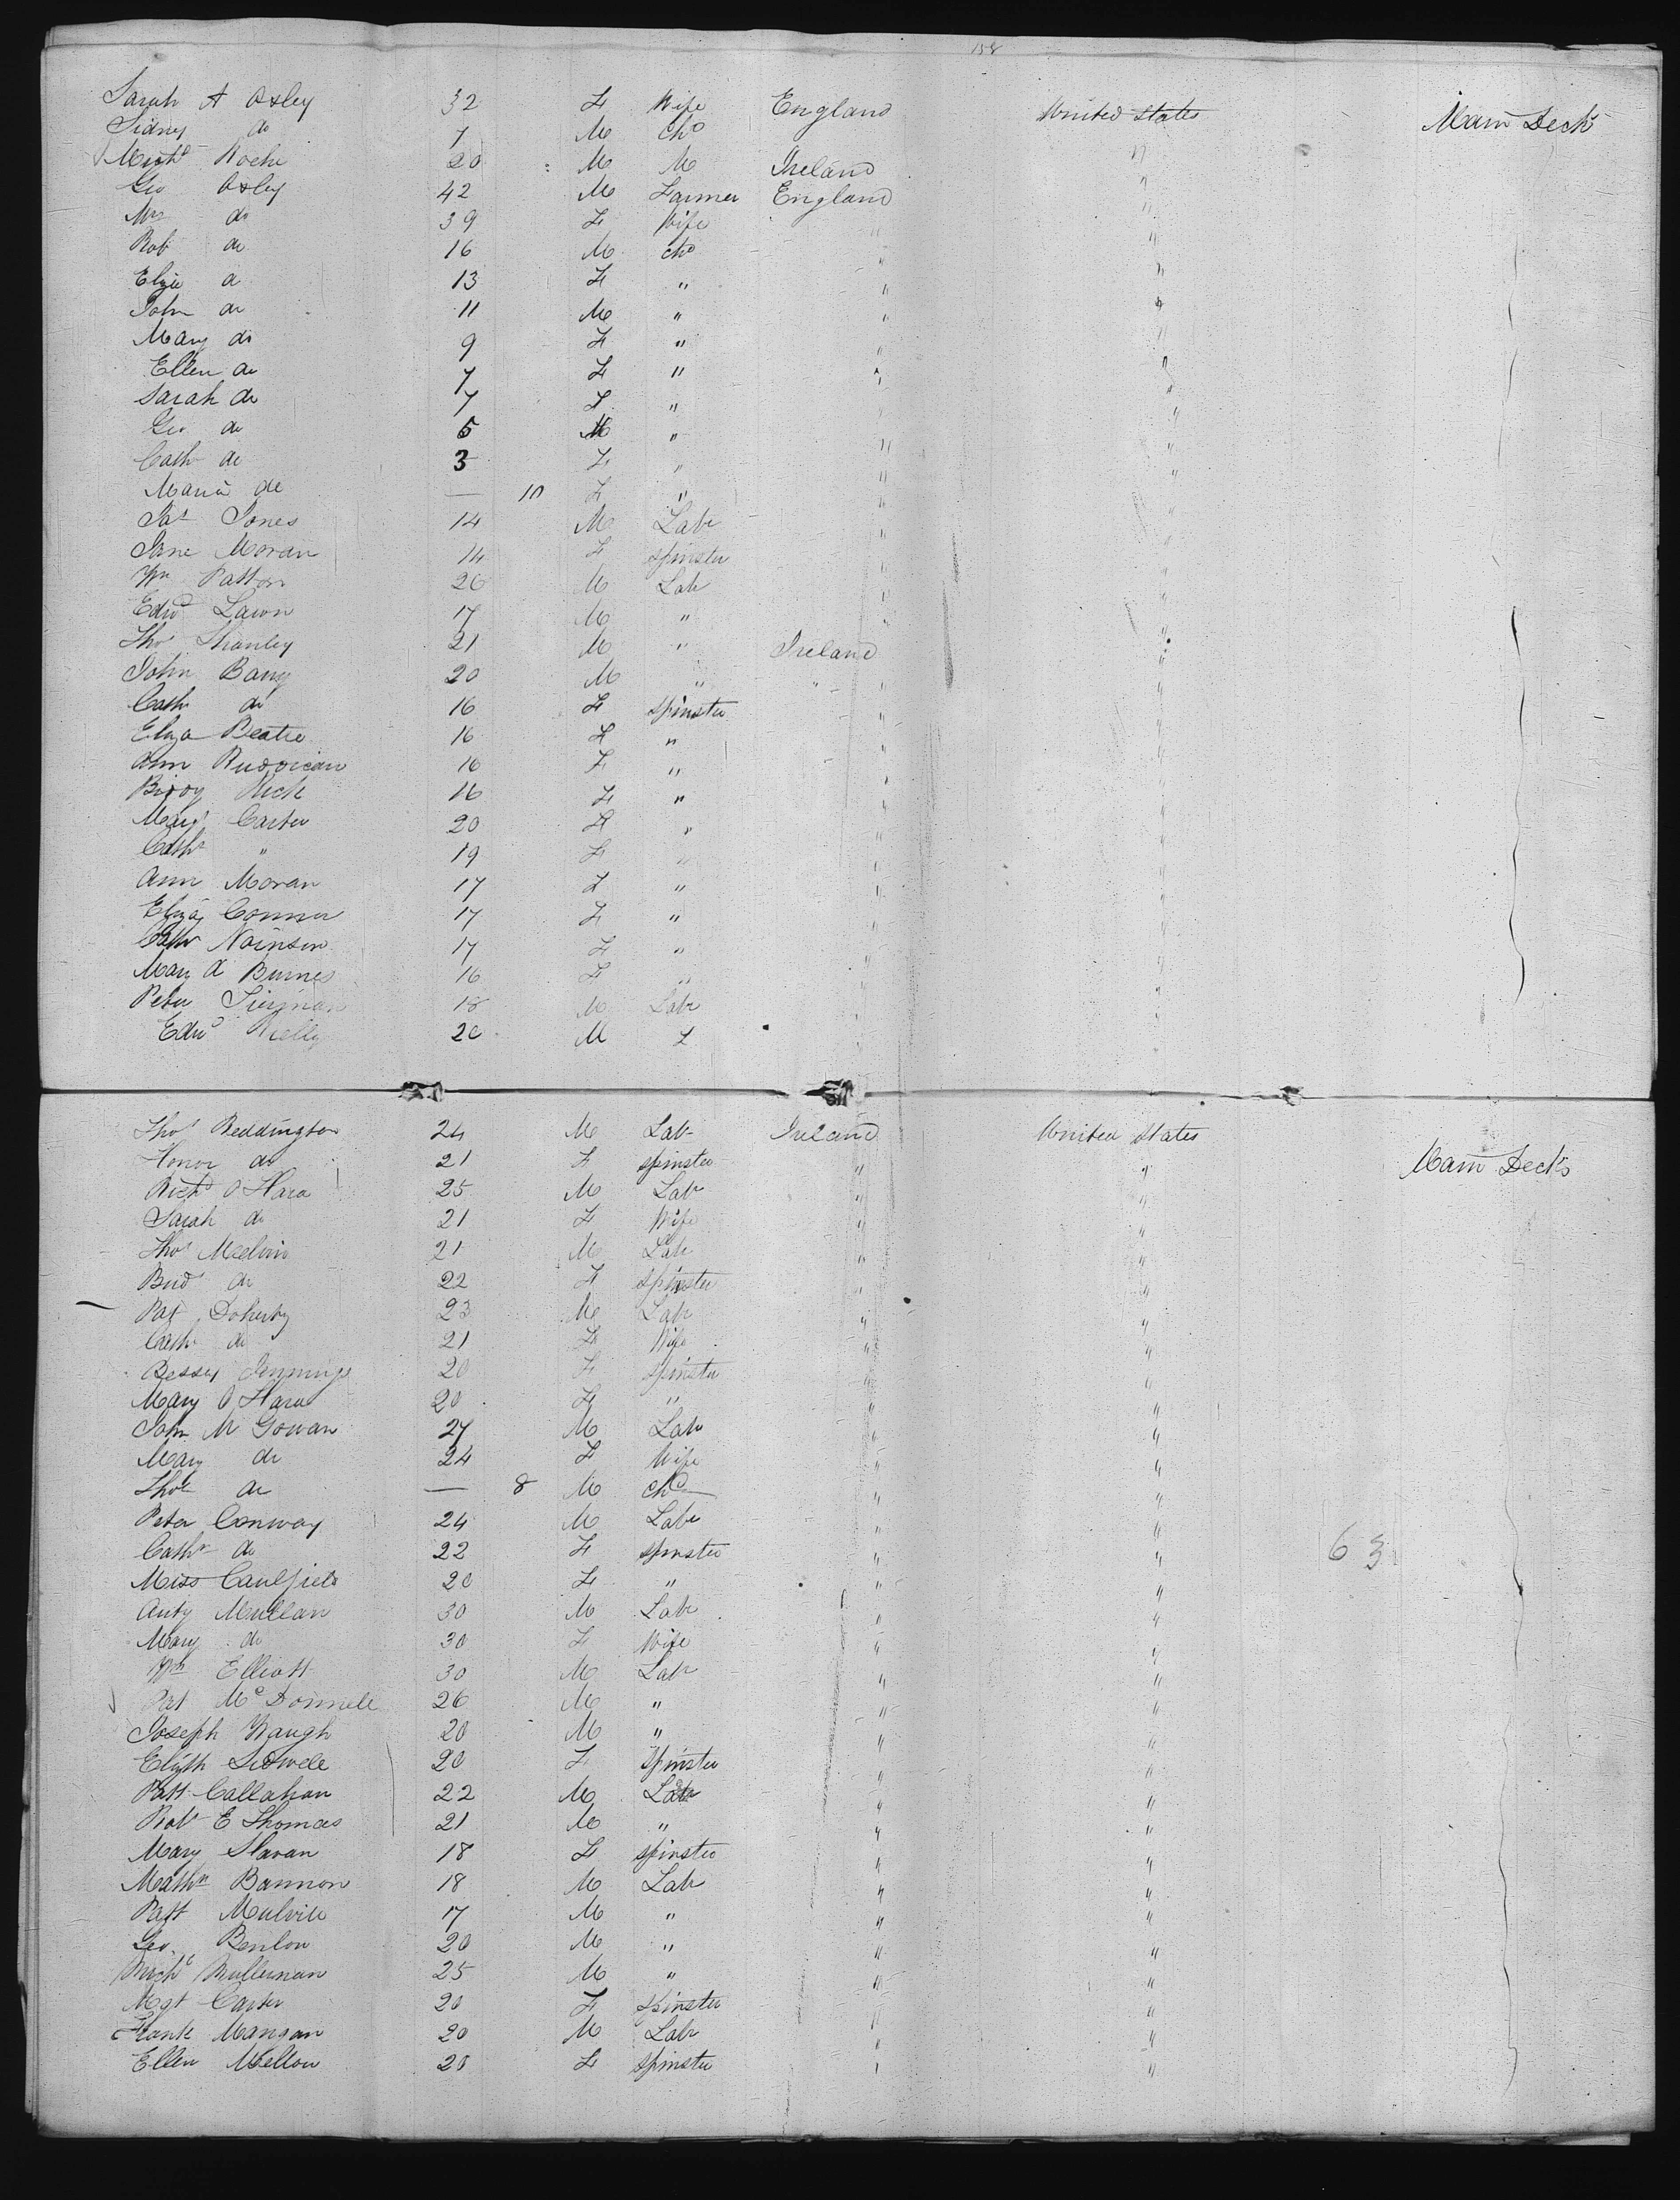 158
Sarah A Oxley 32 F Wife England United States Main Deck
Sidney do 7 M Chd "
Michl Roche 20 M M Ireland "
Geo Oxley 42 M Farmer England "
Mrs do 39 F Wife " "
Rob do 16 M chd " "
Eliza do 13 F " " "
John do 11 M " " "
Mary do 9 F " " "
Ellen do 7 F " " "
Sarah do 7 F " "
Geo do 5 M " " "
Cath do 3 F " " "
Maria do — 10 F " " "
Jas Jones 14 M Labr " "
Jane Moran 14 F Spinster " "
Wm Patton 26 M Lab " "
Edwd Lawn 17 M " " "
Thos Shanley 21 M " Ireland "
John Barry 20 M " " "
Cath do 16 F Spinster "
Eliza Beatie 16 F " " "
Ann 16 F " " "
Rich 16 F " " "
Mary Carter 20 F " " "
Cath " 19 F " " "
Ann Moran 17 F " " "
Eliza Connor 17 F " " "
Cath 17 F " " "
Mary A Burnes 16 F " " "
Peter 18 M Labr " "
Edwd Kielly 20 M L " "
Thos Reddington 24 M Lab Ireland United States
Honor do 21 F Spinster " " Main Deck
Richd O Hara 25 M Lab " "
Sarah do 21 F Wife " "
Thos Melvin 21 M Lab " "
Brid do 22 F Spinster " "
Pat Doherty 23 M Lab " "
Cath do 21 F Wife " "
Bessy Jennings 20 F Spinster " "
Mary O Hara 20 F " " "
John M Gowan 27 M Lab " "
Mary do 24 F Wife " "
Thos do — 8 M chd " "
Peter Conway 24 M Labr " "
Cath do 22 F Spinster " " 63
Miss Caulfield 20 F " " "
Anty Mullan 30 M Labr " "
Mary do 30 F Wife " "
Wm Elliott 30 M Lab " "
Pat Mc Donnell 26 M " " "
Joseph Waugh 20 M " " "
Elizth Sidwell 20 F Spinster " "
Patt Callahan 22 M Lab " "
Robt E Thomas 21 M " " "
Mary Slavan 18 F Spinster " "
Mathw Bannon 18 M Lab " "
Patt Mulvill 17 M " " "
Geo. Benlon 20 M " " "
Michl Mullernan 25 M " " "
Mgt Carter 20 F Spinster " "
Frank Mangan 20 M Lab " "
Ellen Mellon 20 F Spinster " "